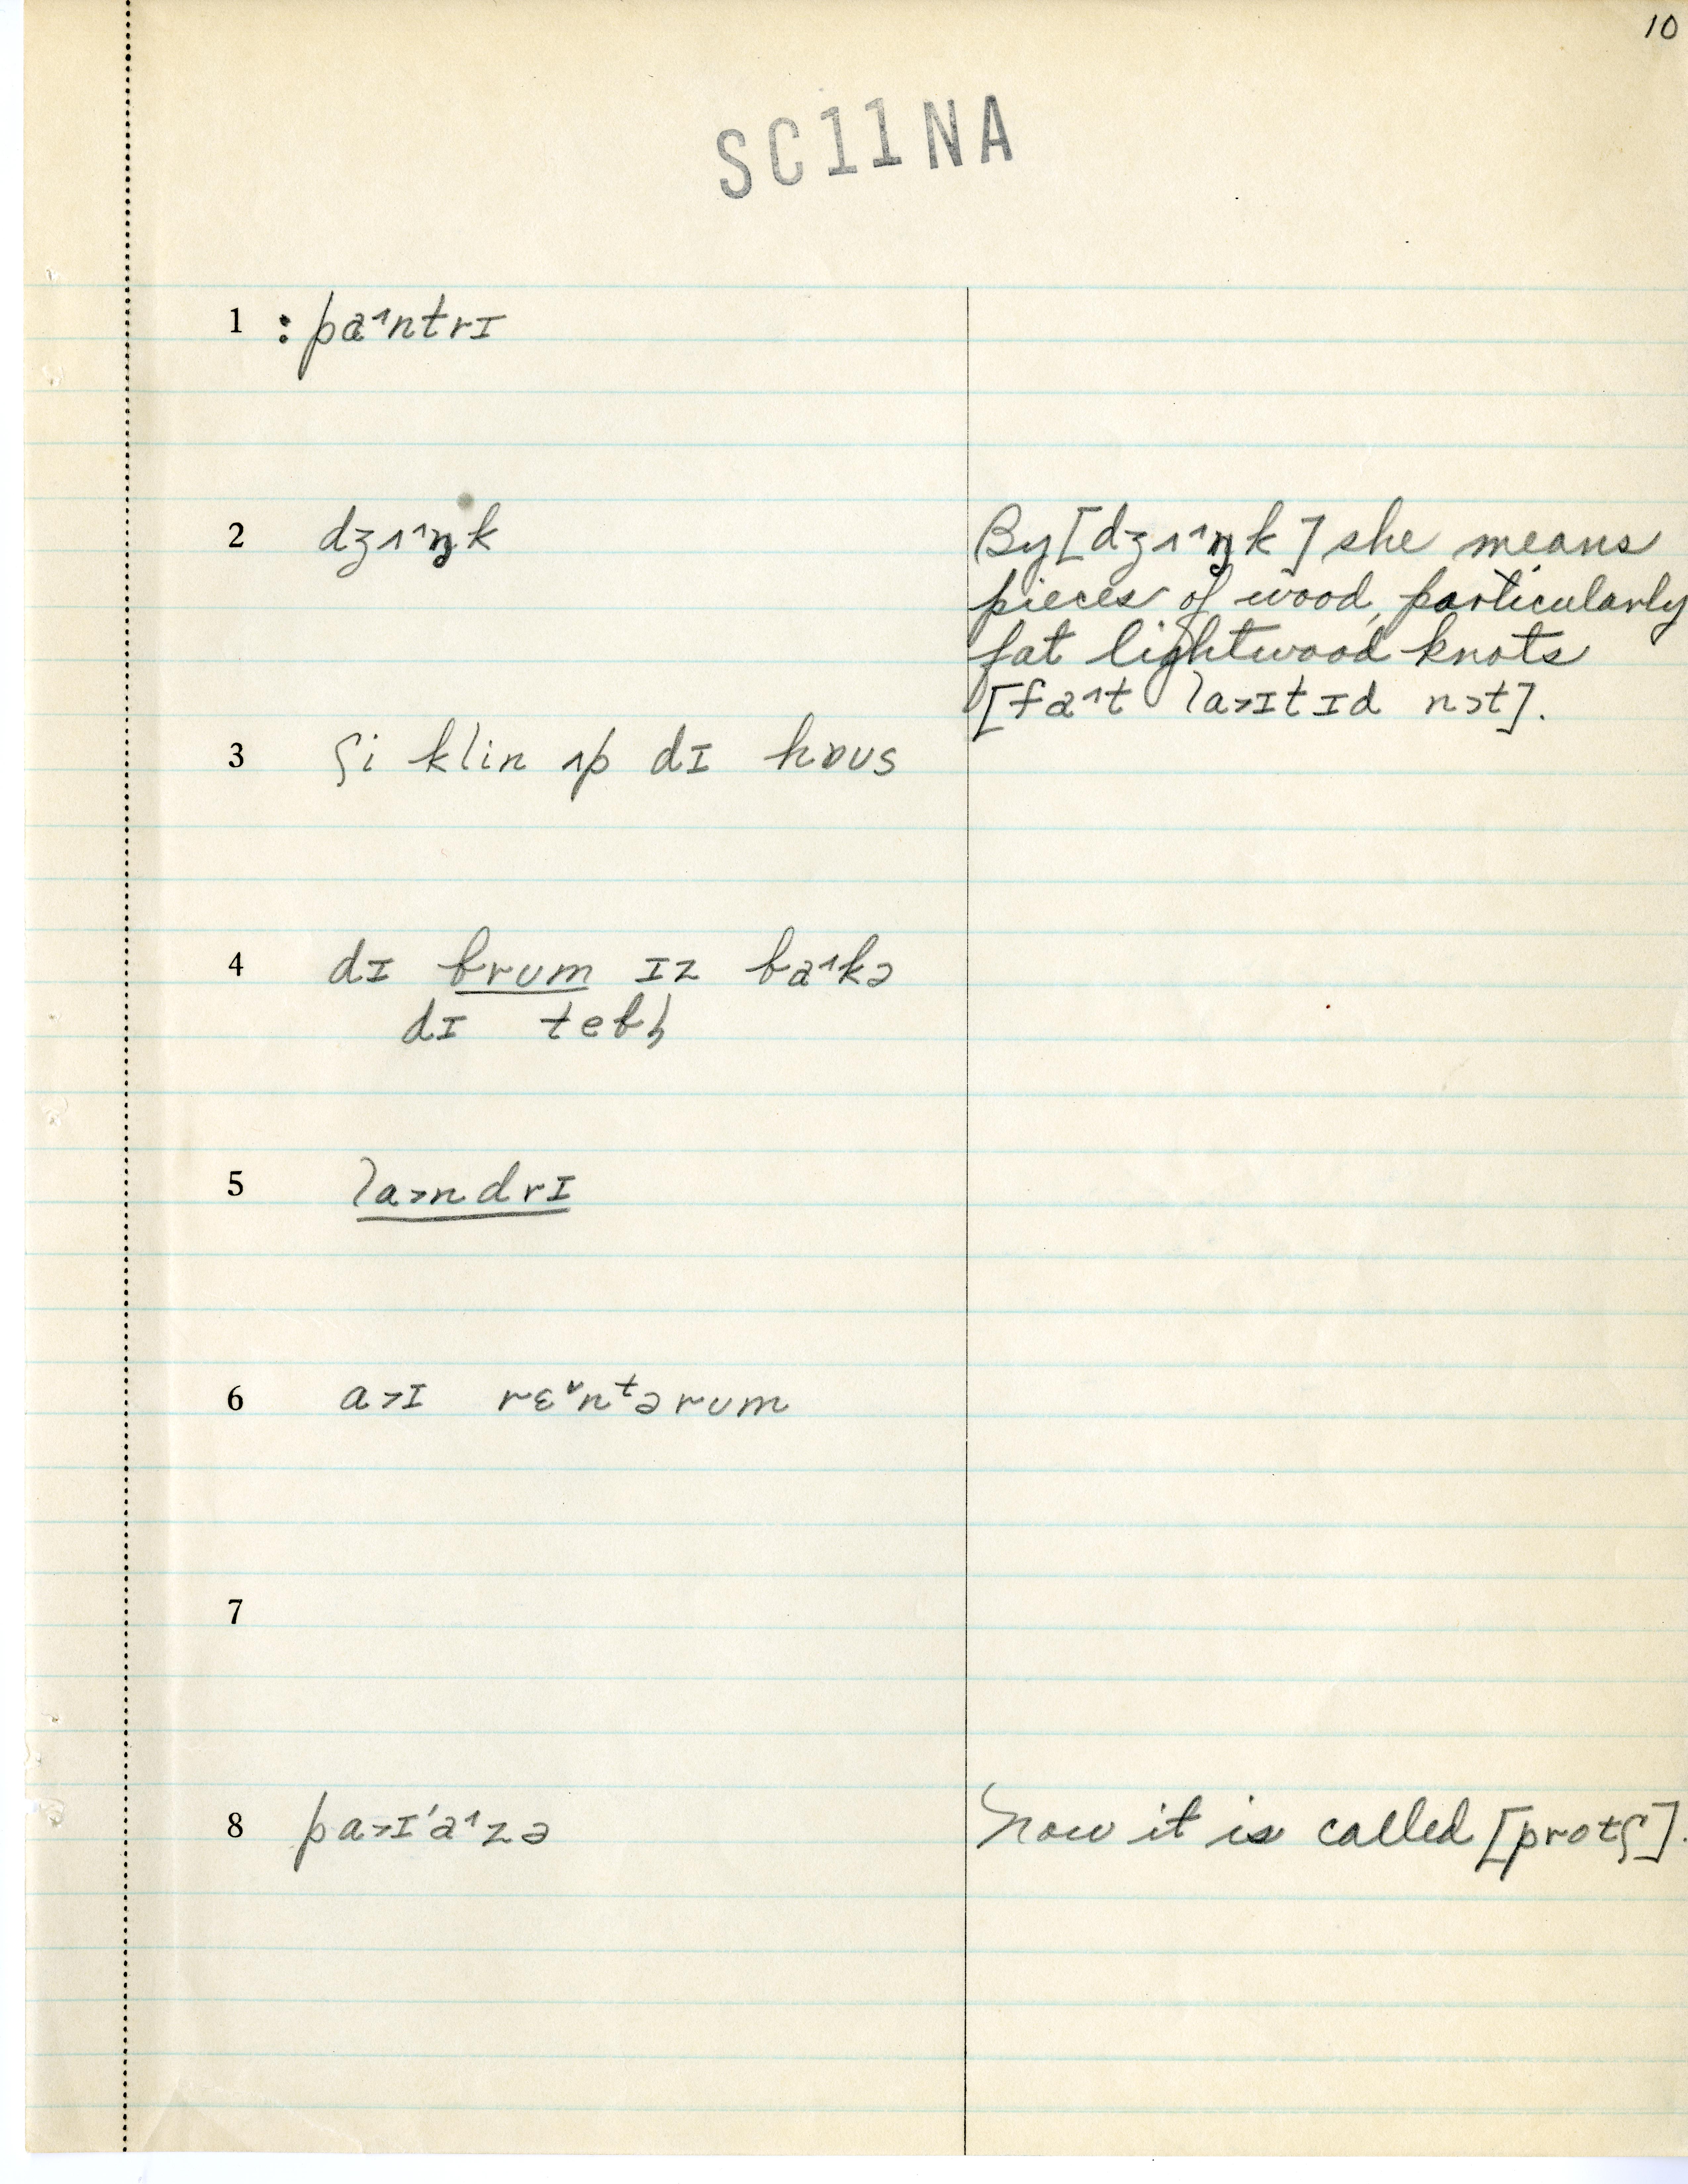 10
SC11NA
1 : pa˄ntrɪ
2 dʒʌ˄ŋk
By [dʒʌ˄ŋk] she means
pieces of wood, particularly
fat lightwood knots
[fa˄t la˃ɪtɪd nɔt].
3 ʃi klin ʌp dɪ hɒus
4 dɪ brum ɪz ba˄kə
dɪ tebl̩
5 la˃ndrɪ
6 a˃ɪ rɛ˅nᵗərum
7
8 pa˃ɪˈa˄zə
Now it is called [protʃ].